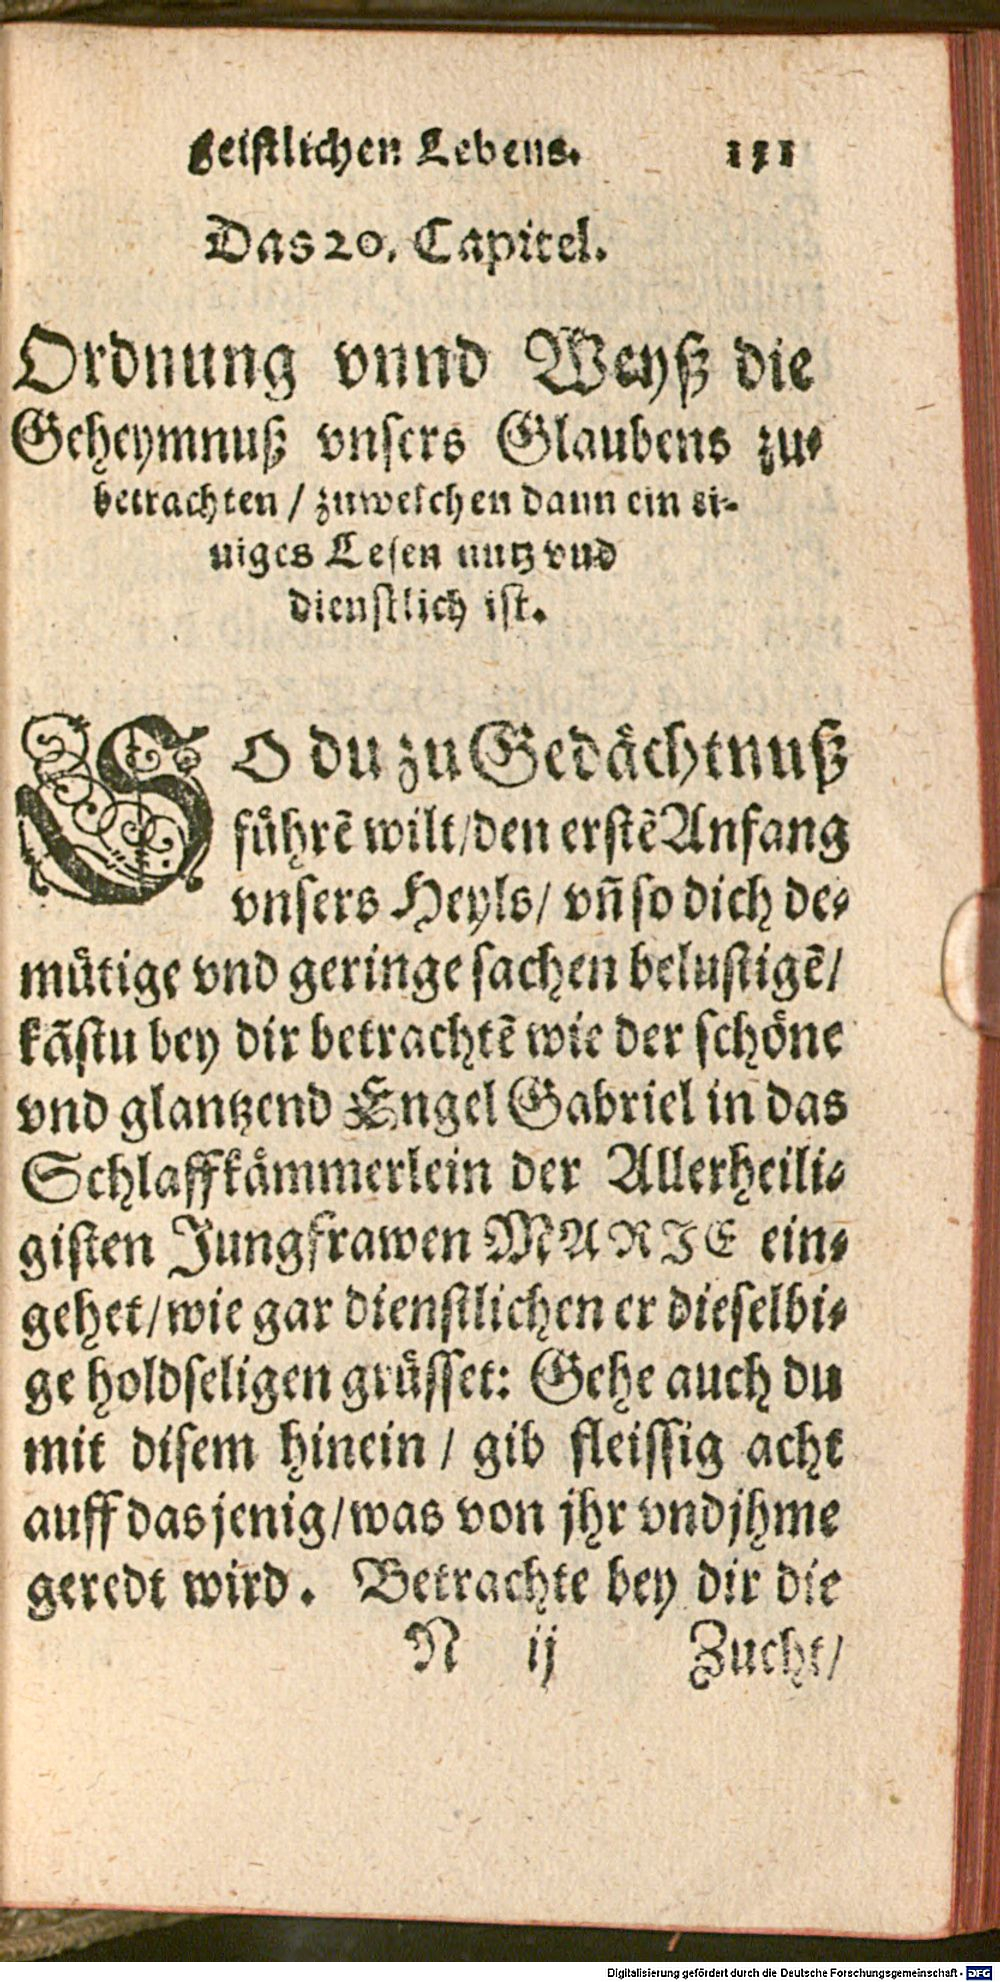 geistlichen Lebens. 151
Das 20. Capitel.
Ordnung vnnd Weyß die
Geheymnuß vnsers Glaubens zu-
betrachten / zuwelchen dann ein ei-
niges Lesen nutz vnd
dienstlich ist.
SO du zu Gedächtnuß
führẽ wilt/den erstẽ Anfang
vnsers Heyls/ vñ so dich de-
mütige vnd geringe sachen belustigẽ/
kãstu bey dir betrachtẽ wie der schöne
vnd glantzend Engel Gabriel in das
Schlaffkämmerlein der Allerheili-
gisten Jungfrawen MARIE ein-
gehet/wie gar dienstlichen er dieselbi-
ge holdseligen grüsset: Gehe auch du
mit disem hinein / gib fleissig acht
auff das jenig/was von jhr vnd jhme
geredt wird. Betrachte bey dir die
N ij Zucht/
Digitalisierung gefördert durch die Deutsche Forschungsgemeinschaft - DFG